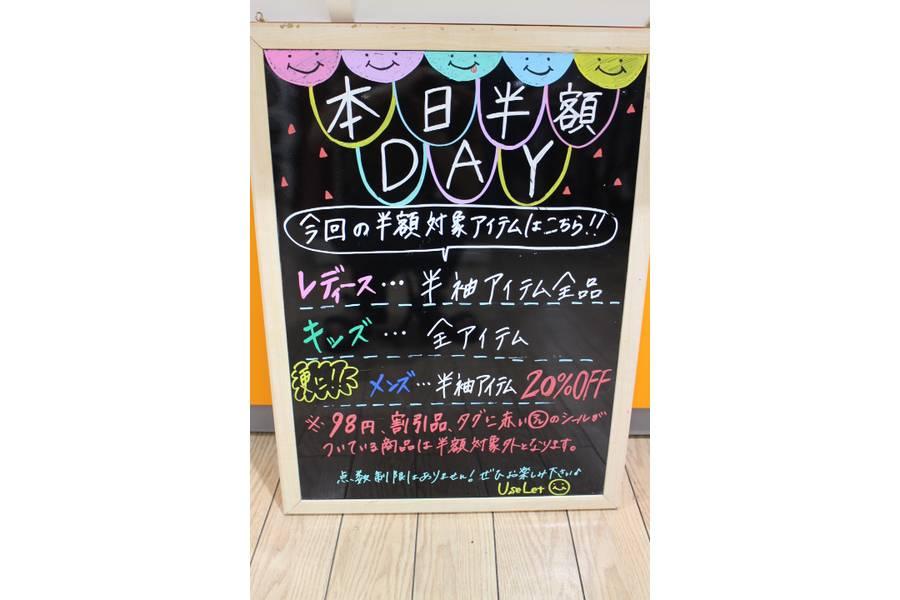 本日半額
DAY
今回の半額対象アイテムはこちら!!
レディース… 半袖アイテム全品
キッズ… 全アイテム
更に!! メンズ…半袖アイテム 20%OFF
※98円、割引品、タグに赤い○のシールが
ついている商品は半額対象外となります。
点数制限はありません!ぜひお楽しみ下さいな
UseLet